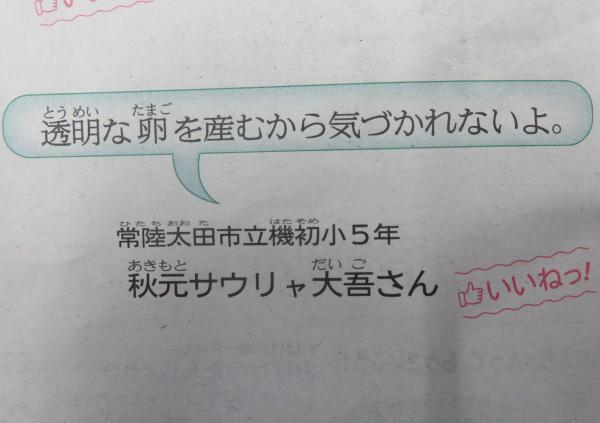 いい
とうめい たまご
透明な卵を産むから気づかれないよ。
ひたちおおた はたそめ
常陸太田市立機初小5年
あきもと だいご
秋元サウリャ大吾さん
いいねっ!